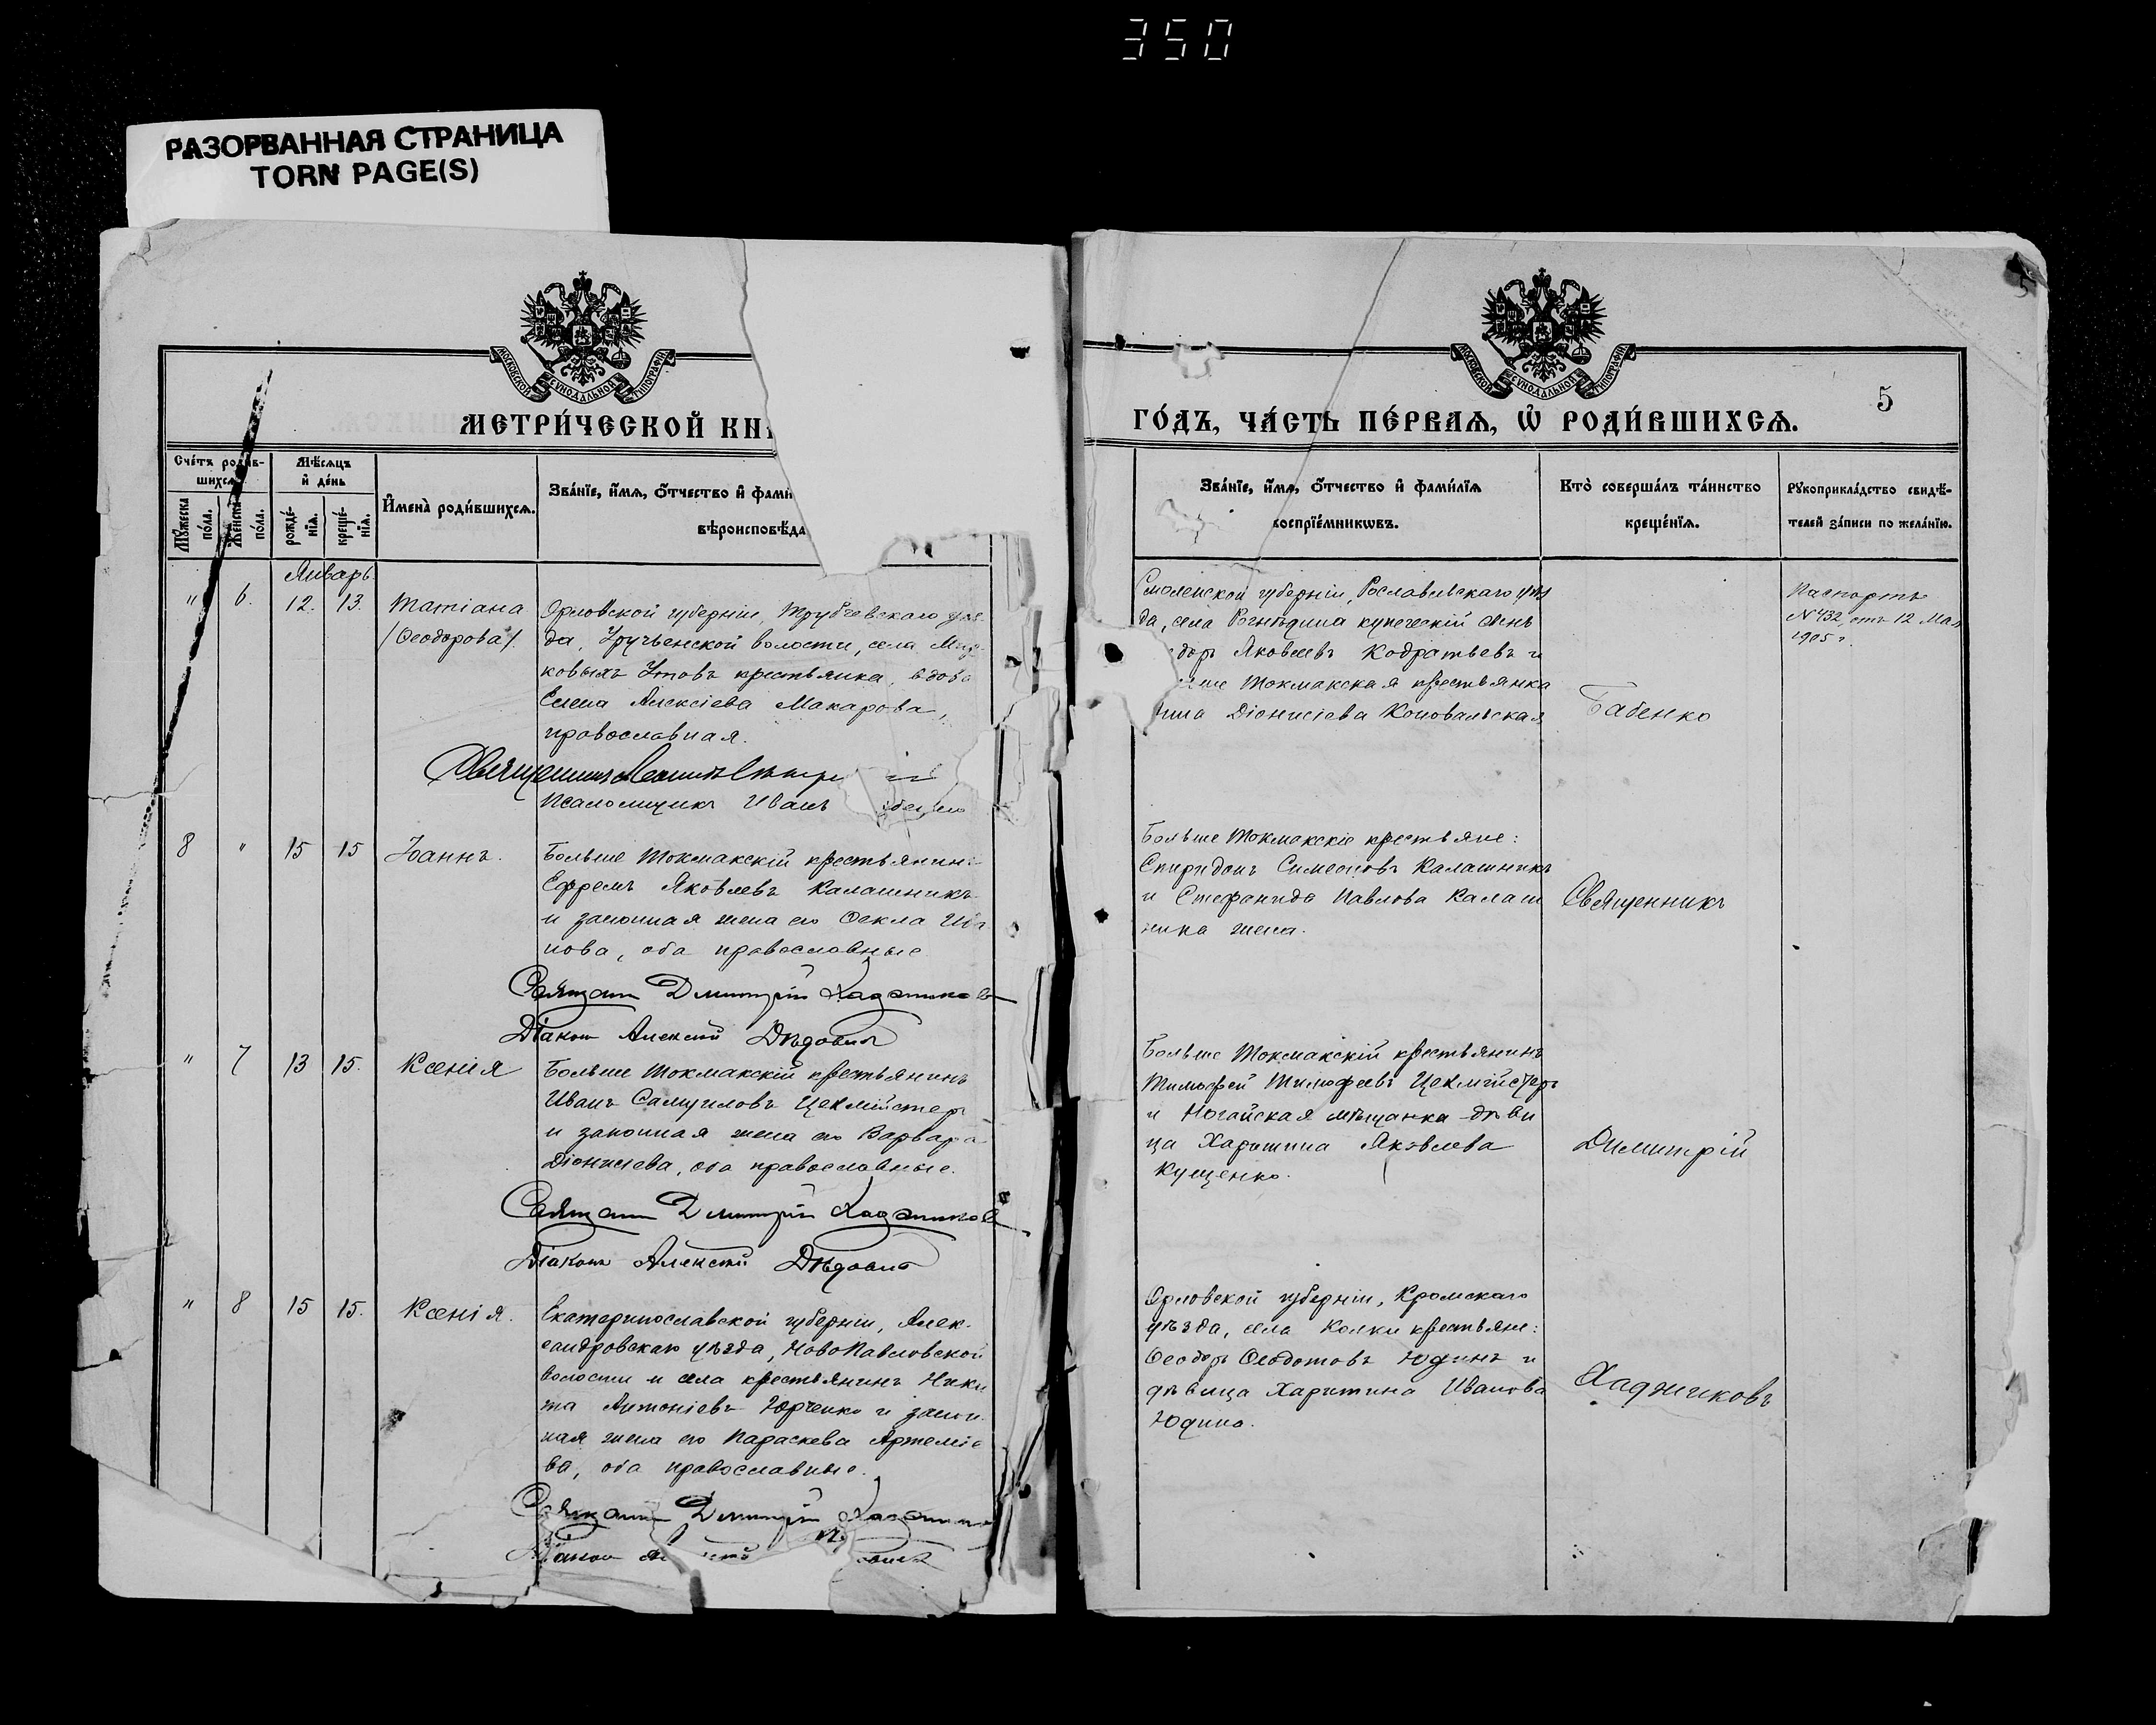 350
РАЗОРВАННАЯ СТРАНИЦА
TORN PAGE(S)
МОСКОВСКОЙ СѴНОДАЛЬНОЙ ТИПОГРАФІИ
МЕТРИ́ЧЕСКОЙ КНИ
Сче́тъ роди́в-
шихсѧ
Мѣ́сѧцъ
и҆ де́нь
И҆мена̀ роди́вшихсѧ.
Зва́нїе, и҆́мѧ, ѻ҆́тчество и҆ фами́
вѣроисповѣ́да
Мꙋ́жеска
по́ла.
Же́нска
по́ла.
рожде́-
нїѧ.
креще́-
нїѧ.
Январь.
" 6. 12. 13. Татіана
/Ѳеодорова/.
Орловской губерніи, Трубчевскаго уѣз
да, волости, села
ковыхъ крестьянка, вдова
Елена Алексіева Макарова,
православная.
Священникъ
Псаломщикъ Иванъ
8 " 15 15 Іоаннъ.
Больше Токмакскій крестьянинъ
Ефремъ Яковлевъ Калашникъ
и законная жена его Ѳекла Ива
нова, оба православные
Священ Димитрій Хаджиновъ
Діаконъ Алексій Дѣдовичъ
" 7 13 15. Ксенія
Больше Токмакскій крестьянинъ
Иванъ Самуиловъ Цехмійстеръ
и законная жена его Варвара
Діонисіева, оба православные.
Священ Димитрій Хаджиновъ
Діаконъ Алексій Дѣдовичъ
" 8 15 15. Ксенія.
Екатеринославской губерніи, Алек-
сандровскаго уѣзда, НовоПавловской
волости и села крестьянинъ Ники
та Антоніевъ Юрченко и закон
ная жена его Параскева Артеміе
ва, оба православные.
Священ Димитрій
Діаконъ
5
МОСКОВСКОЙ СѴНОДАЛЬНОЙ ТИПОГРАФІИ
5
ГО́ДЪ, ЧА́СТЬ ПЕ́РВАѦ, Ѡ҆ РОДИ́ВШИХСѦ.
Зва́нїе, и҆́мѧ, ѻ҆́тчество и҆ фами́лїѧ
воспрїе́мникѡвъ.
Кто̀ соверша́лъ та́инство
креще́нїѧ.
Рꙋкоприкла́дство свидѣ́-
телей за́писи по жела́нїю.
Смоленской губерніи, Рославльскаго уѣз
да, села Рогнѣдина купеческій сынъ
доръ Яковлевъ Кодратьевъ и
ше Токмакская крестьянка
Діонисіева Коновальская
Бабенко
Паспортъ
№ 432, отъ 12 Мая
1905 г.
Больше Токмакскіе крестьяне:
Спиридонъ Симеоновъ Калашникъ
и Стефанида Павлова Калаш
ника жена.
Священникъ
Больше Токмакскій крестьянинъ
Тимофей Тимофеевъ Цехмійстеръ
и Ногайская мѣщанка дѣви
ца Харитина Яковлева
Кущенко.
Димитрій
Орловской губерніи, Кромскаго
уѣзда, села Колки крестьяне:
Ѳеодоръ Ѳеодотовъ Юдинъ и
дѣвица Харитина Иванова
Юдина.
Хаджиновъ